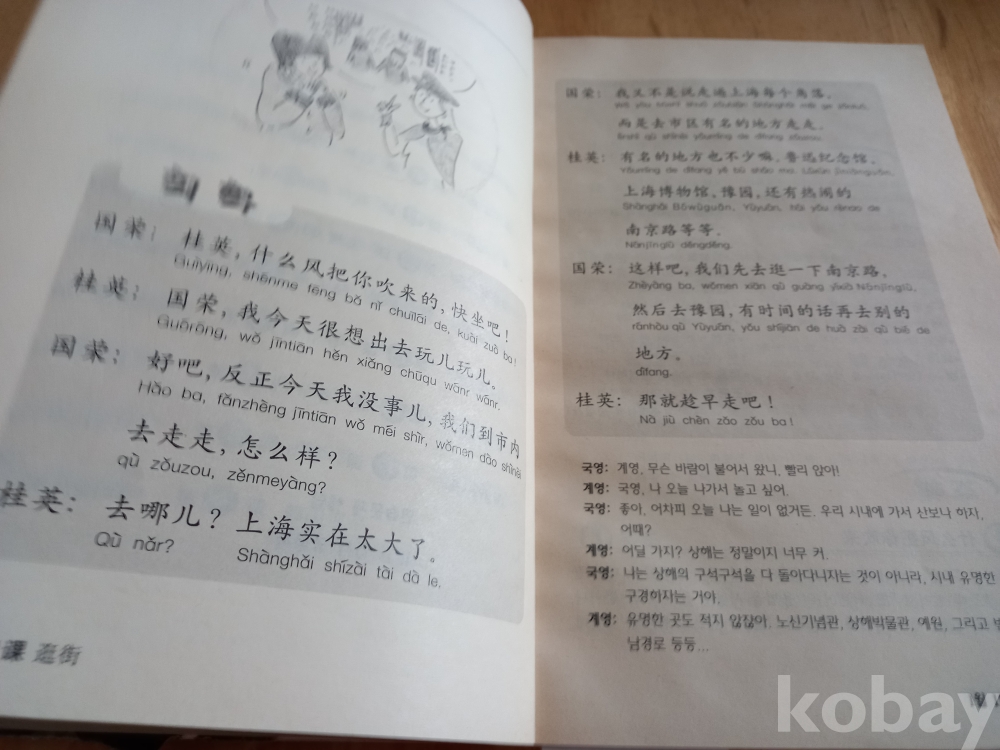 회화
国荣： 桂英，什么风把你吹来的，快坐吧！
Guìyīng, shénme fēng bǎ nǐ chuīlái de, kuài zuò ba!
桂英： 国荣，我今天很想出去玩儿玩儿。
Guóróng, wǒ jīntiān hěn xiǎng chūqu wánr wánr.
国荣： 好吧，反正今天我没事儿，我们到市内
Hǎo ba, fǎnzhèng jīntiān wǒ méi shìr, wǒmen dào shìnèi
去走走，怎么样？
qù zǒuzou, zěnmeyàng?
桂英： 去哪儿？上海实在太大了。
Qù nǎr? Shànghǎi shízài tài dà le.
課 逛街
国荣： 我又不是说走遍上海每个角落，
Wǒ yòu búshì shuō zǒubiàn Shànghǎi měi ge jiǎoluò,
而是去市区有名的地方走走。
érshì qù shìqū yǒumíng de dìfang zǒuzou.
桂英： 有名的地方也不少嘛，鲁迅纪念馆、
Yǒumíng de dìfang yě bù shǎo ma, Lǔxùn jìniànguǎn,
上海博物馆、豫园，还有热闹的
Shànghǎi Bówùguǎn, Yùyuán, hái yǒu rènao de
南京路等等。
Nánjīnglù děngděng.
国荣： 这样吧，我们先去逛一下南京路，
Zhèyàng ba, wǒmen xiān qù guàng yíxià Nánjīnglù,
然后去豫园，有时间的话再去别的
ránhòu qù Yùyuán, yǒu shíjiān de huà zài qù bié de
地方。
dìfang.
桂英： 那就趁早走吧！
Nà jiù chèn zǎo zǒu ba!
국영: 계영, 무슨 바람이 불어서 왔니, 빨리 앉아!
계영: 국영, 나 오늘 나가서 놀고 싶어.
국영: 좋아, 어차피 오늘 나는 일이 없거든. 우리 시내에 가서 산보나 하자,
어때?
계영: 어딜 가지? 상해는 정말이지 너무 커.
국영: 나는 상해의 구석구석을 다 돌아다니자는 것이 아니라, 시내 유명한
구경하자는 거야.
계영: 유명한 곳도 적지 않잖아. 노신기념관, 상해박물관, 예원, 그리고
남경로 등등...
kobay